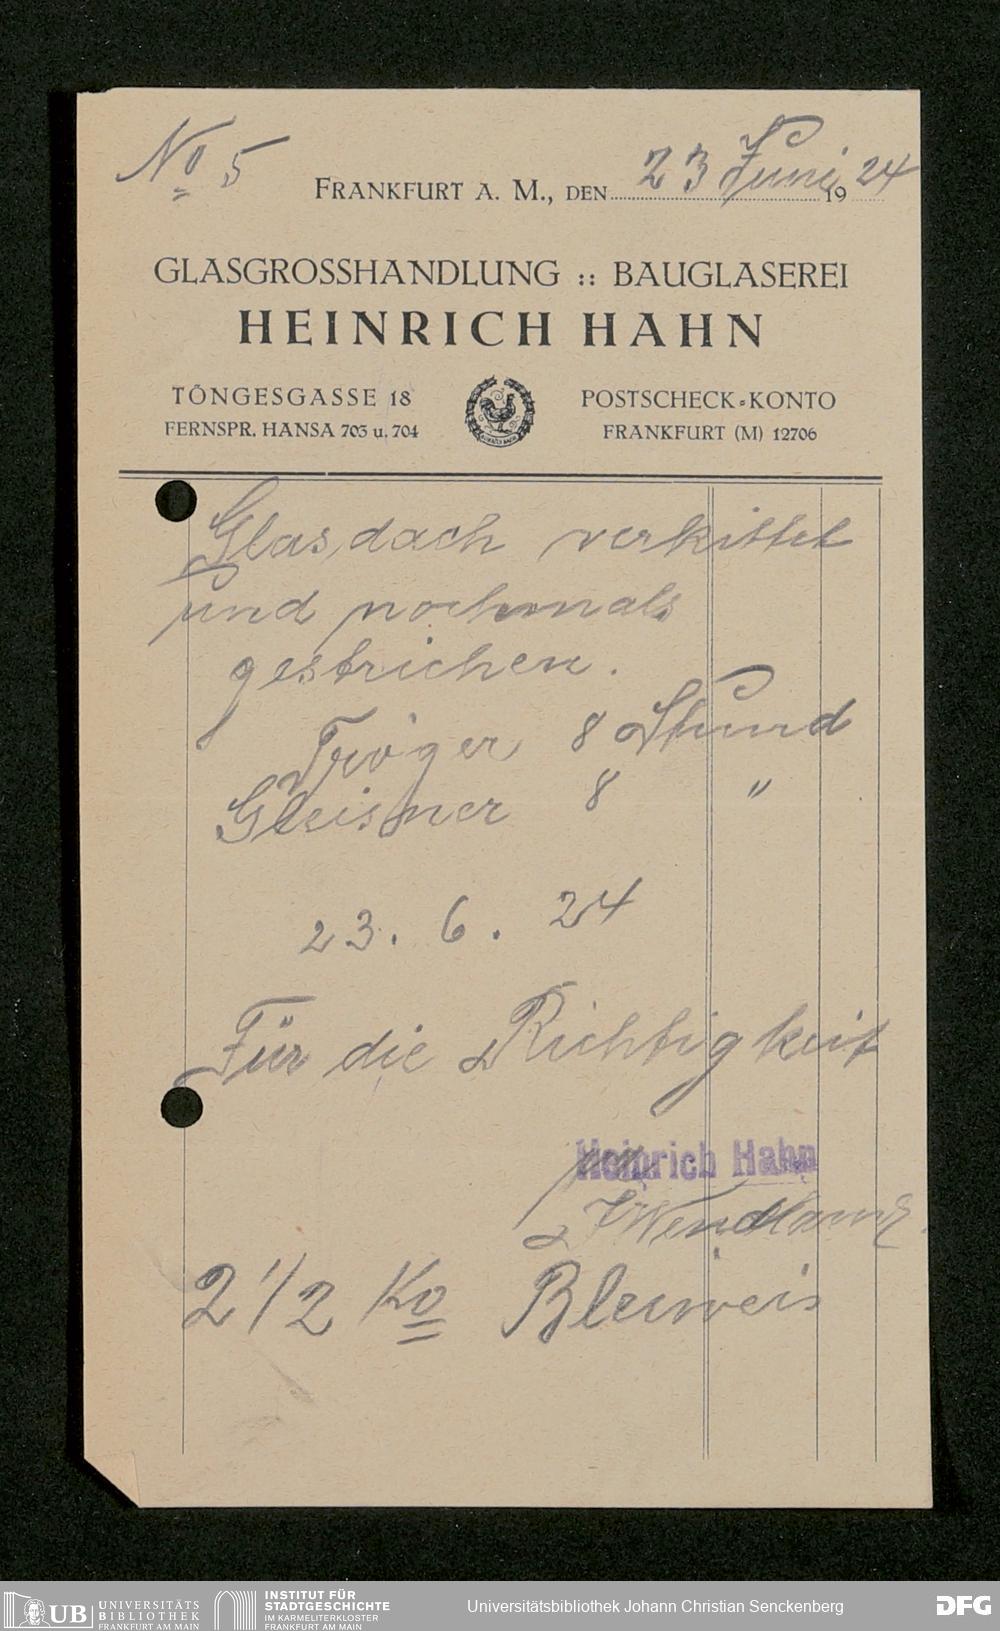 No 5
FRANKFURT A. M., DEN 23 Juni 1924
GLASGROSSHANDLUNG :: BAUGLASEREI
HEINRICH HAHN
TÖNGESGASSE 18
FERNSPR. HANSA 703 u. 704
POSTSCHECK-KONTO
FRANKFURT (M) 12706
Glasdach verkittet
und nochmals
gestrichen.
Tröger 8 Stund
Gleisner 8 "
23. 6. 24
Für die Richtigkeit
Heinrich Hahn
2 1/2 Ko Bleiweis
UB UNIVERSITÄTS
BIBLIOTHEK
FRANKFURT AM MAIN
INSTITUT FÜR
STADTGESCHICHTE
IM KARMELITERKLOSTER
FRANKFURT AM MAIN
Universitätsbibliothek Johann Christian Senckenberg
DFG